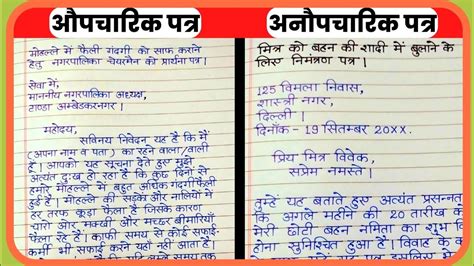 औपचारिक पत्र
मौहल्ले में फैली गंदगी को साफ कराने
हेतु नगरपालिका चेयरमैन की प्रार्थना पत्र।
सेवा में,
माननीय नगरपालिका अध्यक्ष,
टाण्डा अम्बेडकरनगर।
महोदय,
सविनय निवेदन यह है कि मैं
(अपना नाम व पता) का रहने वाला/वाली
हूँ। आपको यह सूचना देते हुए मुझे
अत्यंत दुःख हो रहा है कि कुछ दिनों से
हमारे मौहल्ले में बहुत अधिक गंदगी फैली
हुई है। मौहल्ले की सड़कों और नालियों में
हर तरफ कूड़ा फैला है जिसके कारण
चारों ओर मक्खी और मच्छर बीमारियाँ
फैला रहे हैं। काफी समय से कोई सफाई-
कर्मी भी सफाई करने यहाँ नहीं आता है।
अनौपचारिक पत्र
मित्र को बहन की शादी में बुलाने के
लिए निमंत्रण पत्र।
125 विमला निवास,
शास्त्री नगर,
दिल्ली।
दिनाँक - 19 सितम्बर 20xx.
प्रिय मित्र विवेक,
सप्रेम नमस्ते।
तुम्हें यह बताते हुए अत्यंत प्रसन्नत
कि अगले महीने की 20 तारीख के
मेरी छोटी बहन नमिता का शुभ वि
होना सुनिश्चित हुआ है। विवाह के क